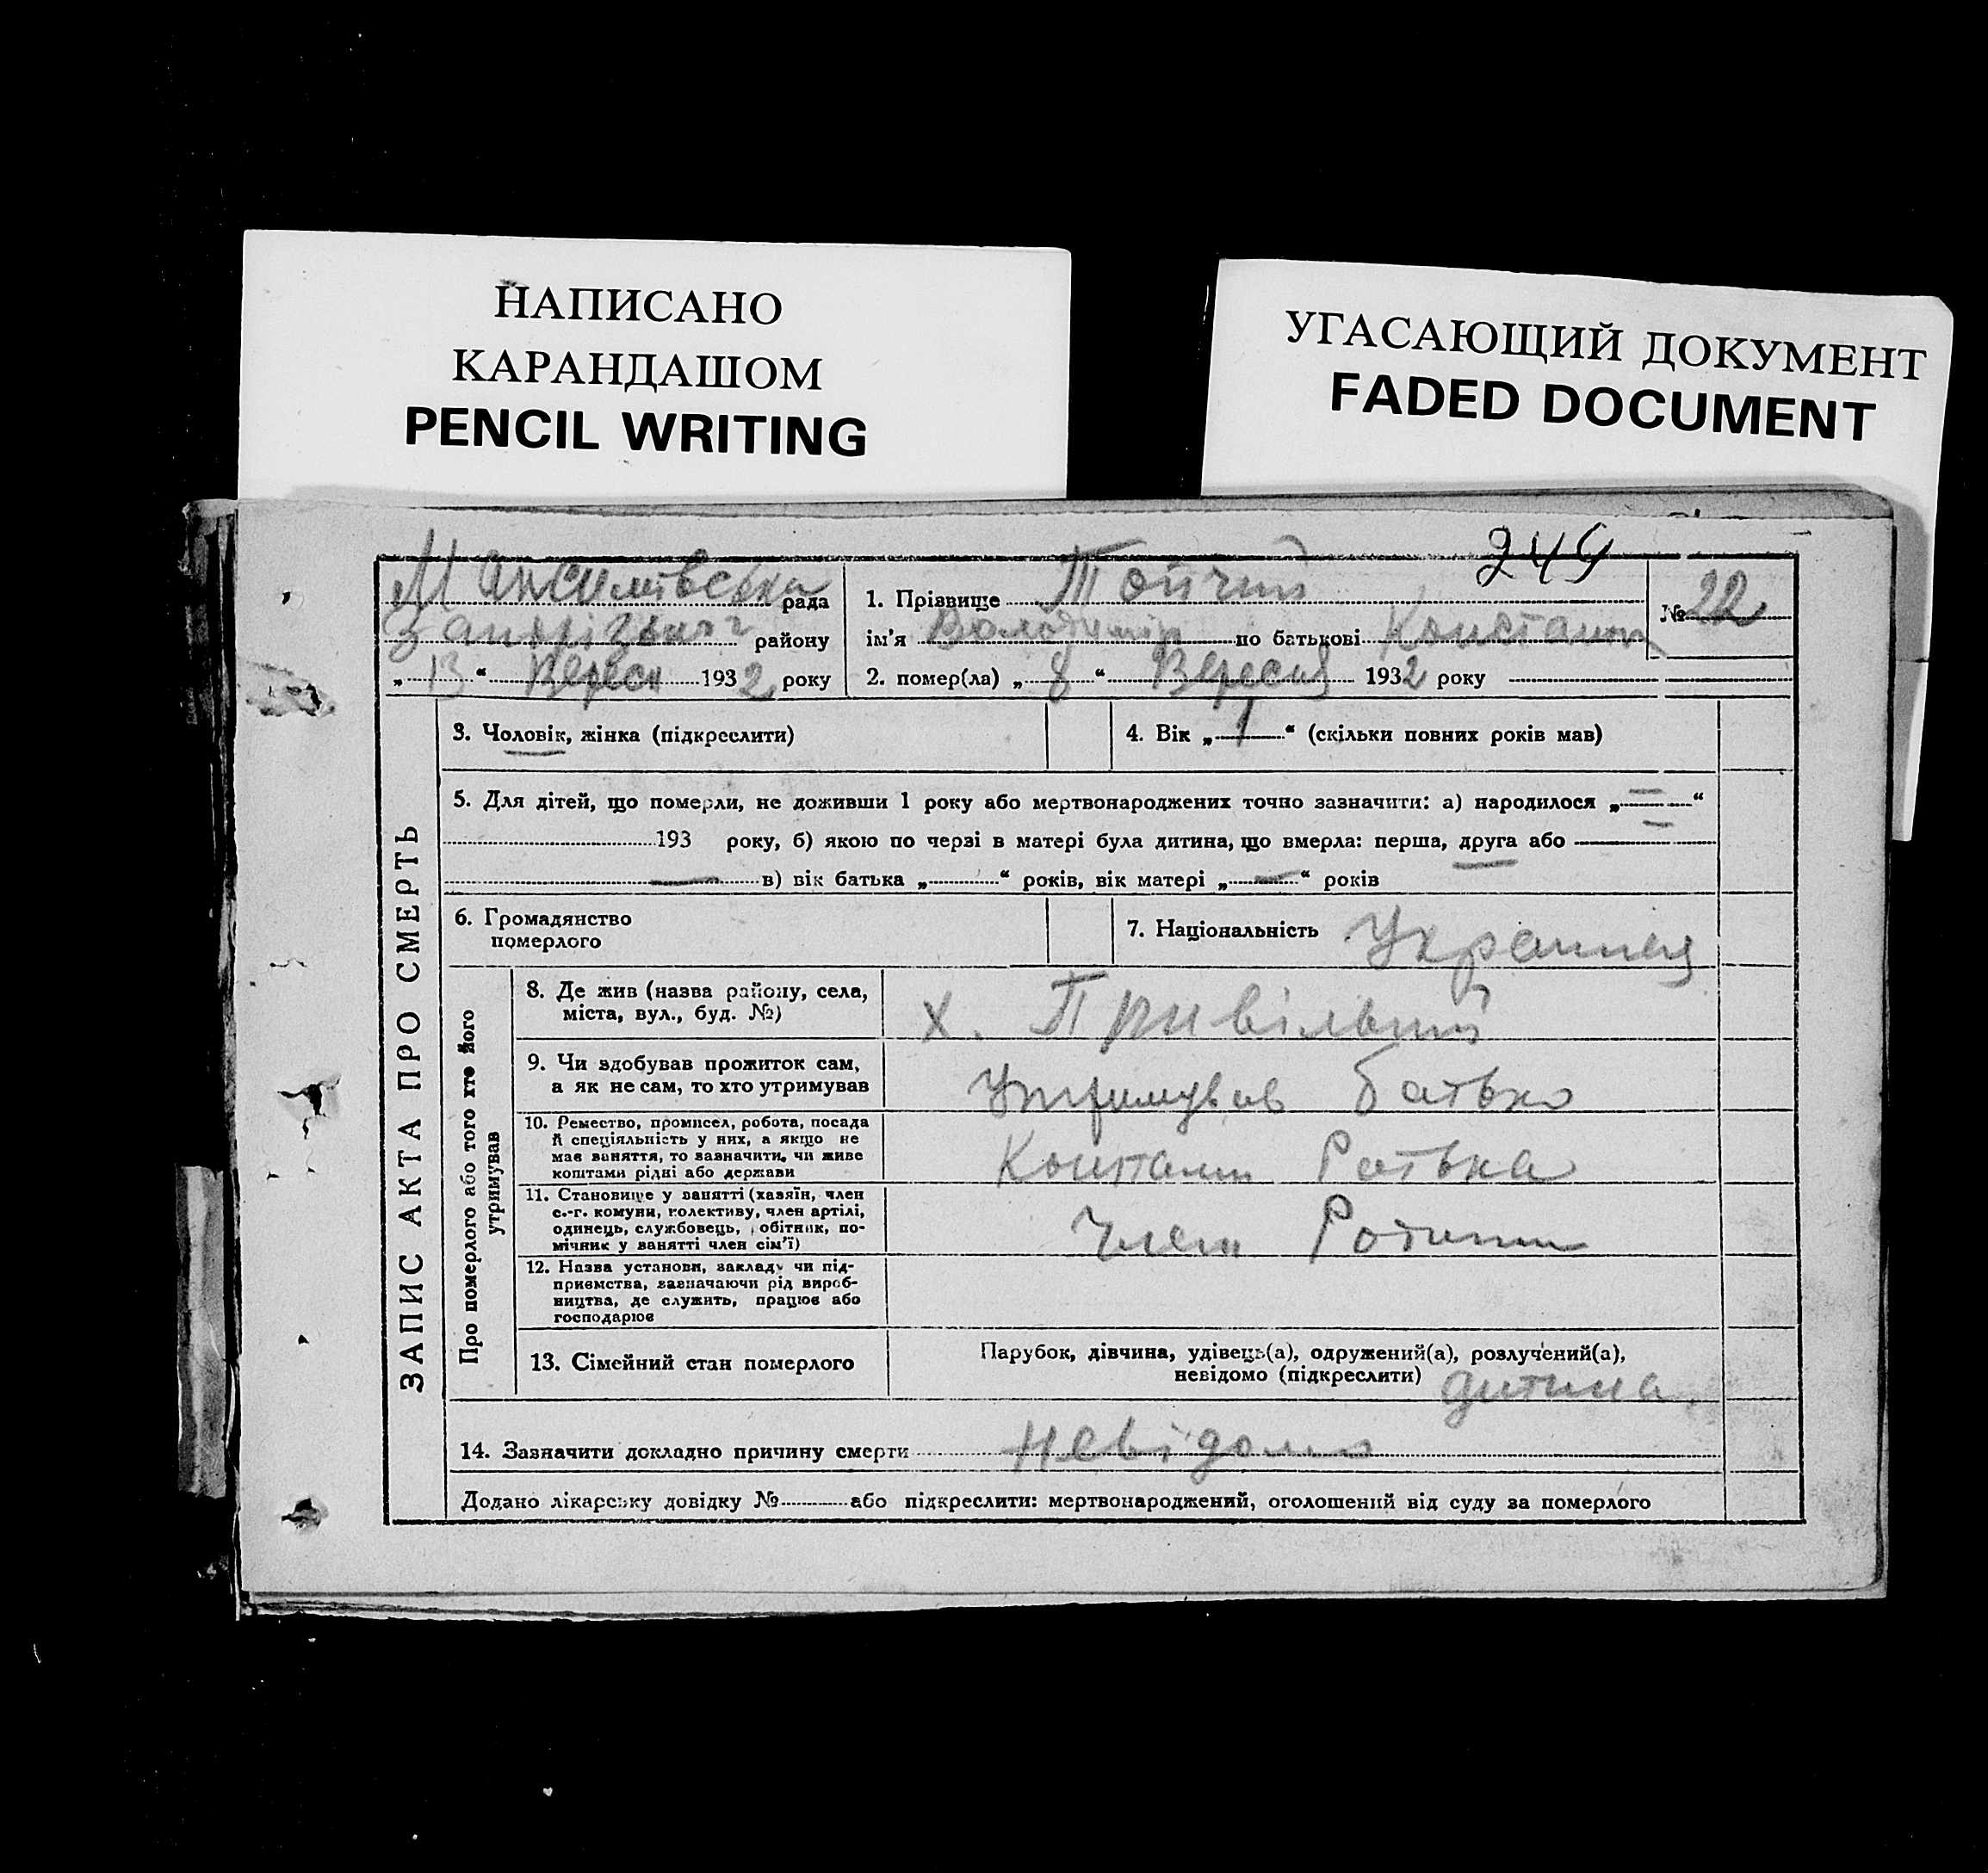 НАПИСАНО
КАРАНДАШОМ
PENCIL WRITING
УГАСАЮЩИЙ ДОКУМЕНТ
FADED DOCUMENT
249
рада
району
„ 13 “ Вересн 1932 року
1. Прізвище
№ 22
ім'я Володимір по батькові Констант
2. помер(ла) „ 8 “ Вересня 1932 року
ЗАПИС АКТА ПРО СМЕРТЬ
3. Чоловік, жінка (підкреслити)
4. Вік „ 1 “ (скільки повних років мав)
5. Для дітей, що померли, не доживши 1 року або мертвонароджених точно зазначити: а) народилося „ — “
193 року, б) якою по черзі в матері була дитина, що вмерла: перша, друга або
в) вік батька „ “ років, вік матері „ — “ років
6. Громадянство
померлого
7. Національність
Про померлого або того хто його
утримував
8. Де жив (назва району, села,
міста, вул., буд. №)
х. Привільний
9. Чи здобував прожиток сам,
а як не сам, то хто утримував
Утримував батько
10. Ремество, промисел, робота, посада
й спеціяльність у них, а якщо не
має заняття, то зазначити, чи живе
коштами рідні або держави
Коштами Батька
11. Становище у занятті (хазяїн, член
с.-г. комуни, колективу, член артілі,
одинець, службовець, робітник, по-
мічник у занятті член сім'ї)
Член Родини
12. Назва установи, закладу чи під-
приємства, зазначаючи рід вироб-
ництва, де служить, працює або
господарює
13. Сімейний стан померлого
Парубок, дівчина, удівець(а), одружений(а), розлучений(а),
невідомо (підкреслити) дитина
14. Зазначити докладно причину смерти Невідомо
Додано лікарську довідку № або підкреслити: мертвонароджений, оголошений від суду за померлого